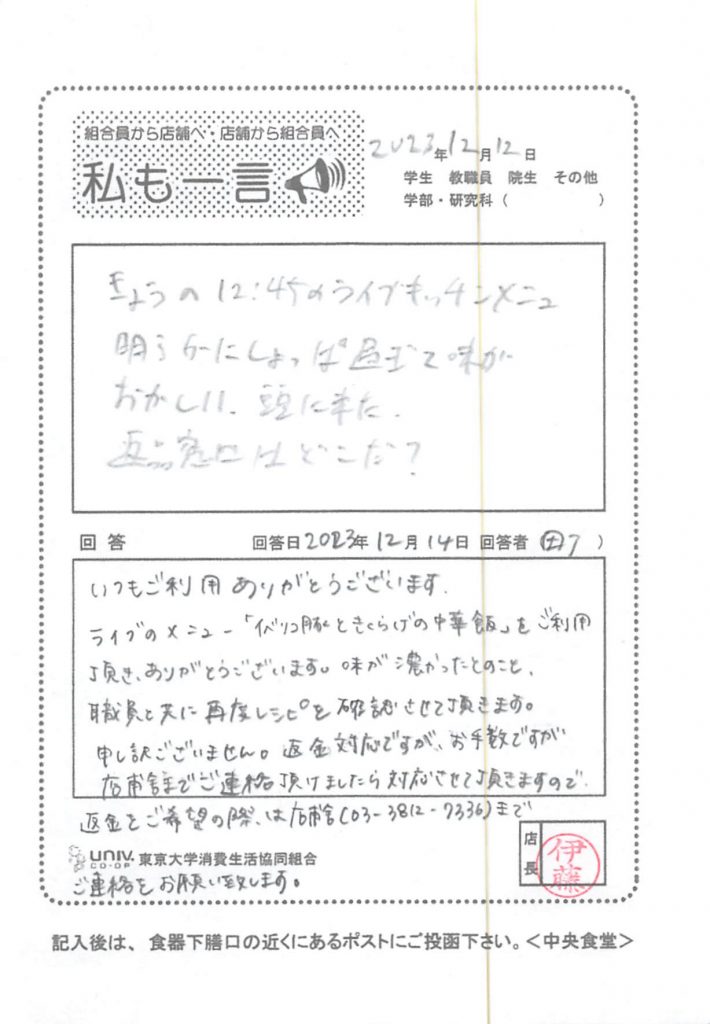 組合員から店舗へ・店舗から組合員へ
私も一言
2023年12月12日
学生 教職員 院生 その他
学部・研究科 ( )
きょうの12:45のライブキッチンメニュ
明らかにしょっぱ過ぎて味が
おかしい、頭に来た、
返品窓口はどこだ?
回答 回答日2023年12月14日 回答者 )
いつもご利用ありがとうございます.
ライブのメニュー「イベリコ豚ときくらげの中華飯」をご利用
頂き、ありがとうございます。味が濃かったとのこと、
職員と共に再度レシピを確認させて頂きます。
申し訳ございません。返金対応ですが、お手数ですが
店舗までご連絡頂けましたら対応させて頂きますので、
返金をご希望の際は店舗(03-3812-7336)まで
UNIV. CO-OP 東京大学消費生活協同組合
ご連絡をお願い致します。
店長 伊藤
記入後は、食器下膳口の近くにあるポストにご投函下さい。<中央食堂>